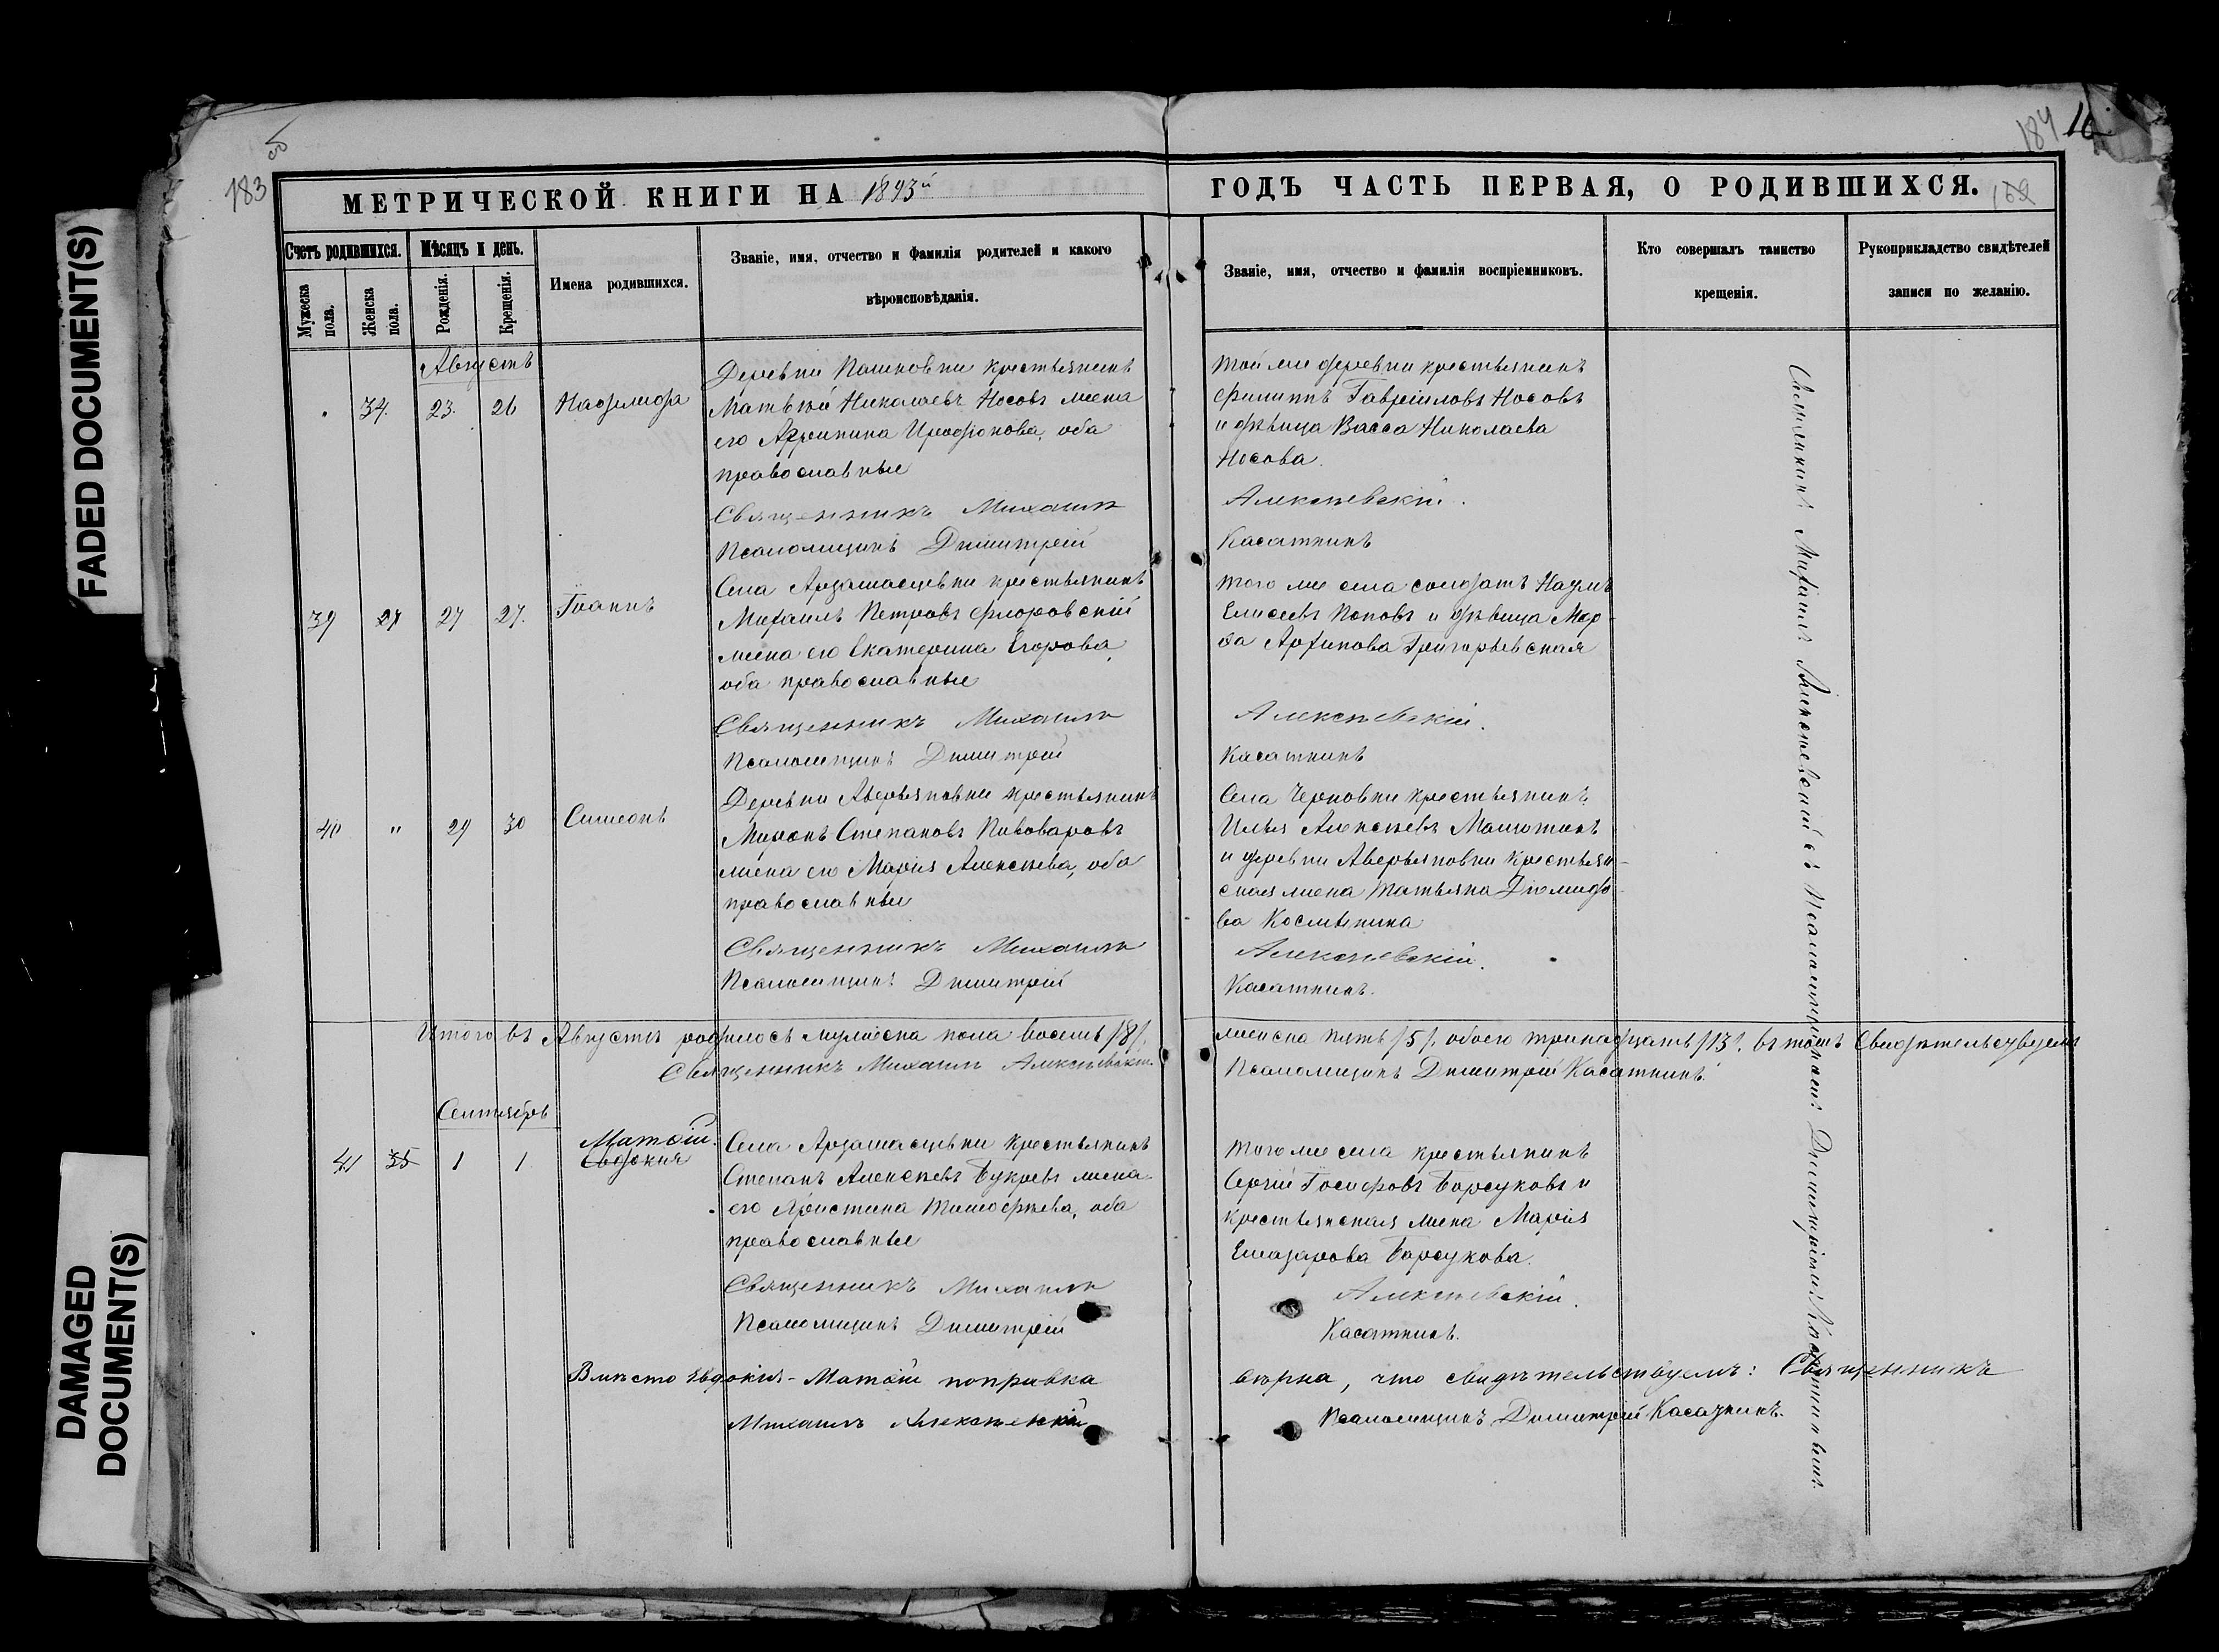 FADED DOCUMENT(S)
DAMAGED DOCUMENT(S)
183
184
16
МЕТРИЧЕСКОЙ КНИГИ НА 1893й
ГОДЪ ЧАСТЬ ПЕРВАЯ, О РОДИВШИХСЯ.
Счетъ родившихся.
Мѣсяцъ и день.
Мужеска пола.
Женска пола.
Рожденія.
Крещенія.
Имена родившихся.
Званіе, имя, отчество и фамилія родителей и какого
вѣроисповѣданія.
Званіе, имя, отчество и фамилія воспріемниковъ.
Кто совершалъ таинство
крещенія.
Рукоприкладство свидѣтелей
записи по желанію.
Августъ
34. 23. 26
Деревни Пашковки крестьянинъ
Матѳій Николаевъ Носовъ жена
его Агрипина Иродіонова, оба
православные
Священникъ Михаилъ
Псаломщикъ Димитрій
Той же деревни крестьянинъ
Филиппъ Гавріиловъ Носовъ
и дѣвица Васса Николаева
Носова.
Алексѣевскій.
Касаткинъ
39 27 27 27. Іоаннъ
Села Арзамасцевки крестьянинъ
Михаилъ Петровъ Флоровскій
жена его Екатерина Егорова,
оба православные
Священникъ Михаилъ
Псаломщикъ Димитрій
Того же села солдатъ Наумъ
Елисеевъ Поповъ и дѣвица Мар-
ѳа Архипова Григорьевская
Алексѣевскій.
Касаткинъ
40 " 29 30 Симеонъ
Деревни Аверьяновки крестьянинъ
Миронъ Степановъ Пивоваровъ
жена его Марія Алексѣева, оба
православные
Священникъ Михаилъ
Псаломщикъ Димитрій
Села Черновки крестьянинъ
Илья Алексѣевъ Малюткинъ
и деревни Аверьяновки крестьян-
ская жена Татьяна Діомидо-
ва
Алексѣевскій.
Касаткинъ.
Итого въ Августѣ родилось мужеска пола восемь /8/.
женска пять /5/. обоего тринадцать /13/. въ томъ Свидѣтельствуемъ
Священникъ Михаилъ Алексѣевскій.
Псаломщикъ Димитрій Касаткинъ.
Сентябрь
Матѳій.
41 35 1 1 Евдокия
Села Арзамасцевки крестьянинъ
Степанъ Алексѣевъ Букревъ жена
его Христина Тимоѳѣева, оба
православные
Священникъ Михаилъ
Псаломщикъ Димитрій
Того же села крестьянинъ
Сергій Іосифовъ Борсуковъ и
крестьянская жена Марія
Елиазарова Борсукова.
Алексѣевскій.
Касаткинъ.
Вмѣсто Евдокія - Матѳій поправка
вѣрна, что свидѣтельствуемъ: Священникъ
Михаилъ Алексѣевскій
Псаломщикъ Димитрій Касаткинъ.
Священникъ Михаилъ Алексѣевскій съ Псаломщикомъ Димитріемъ Касаткинымъ.